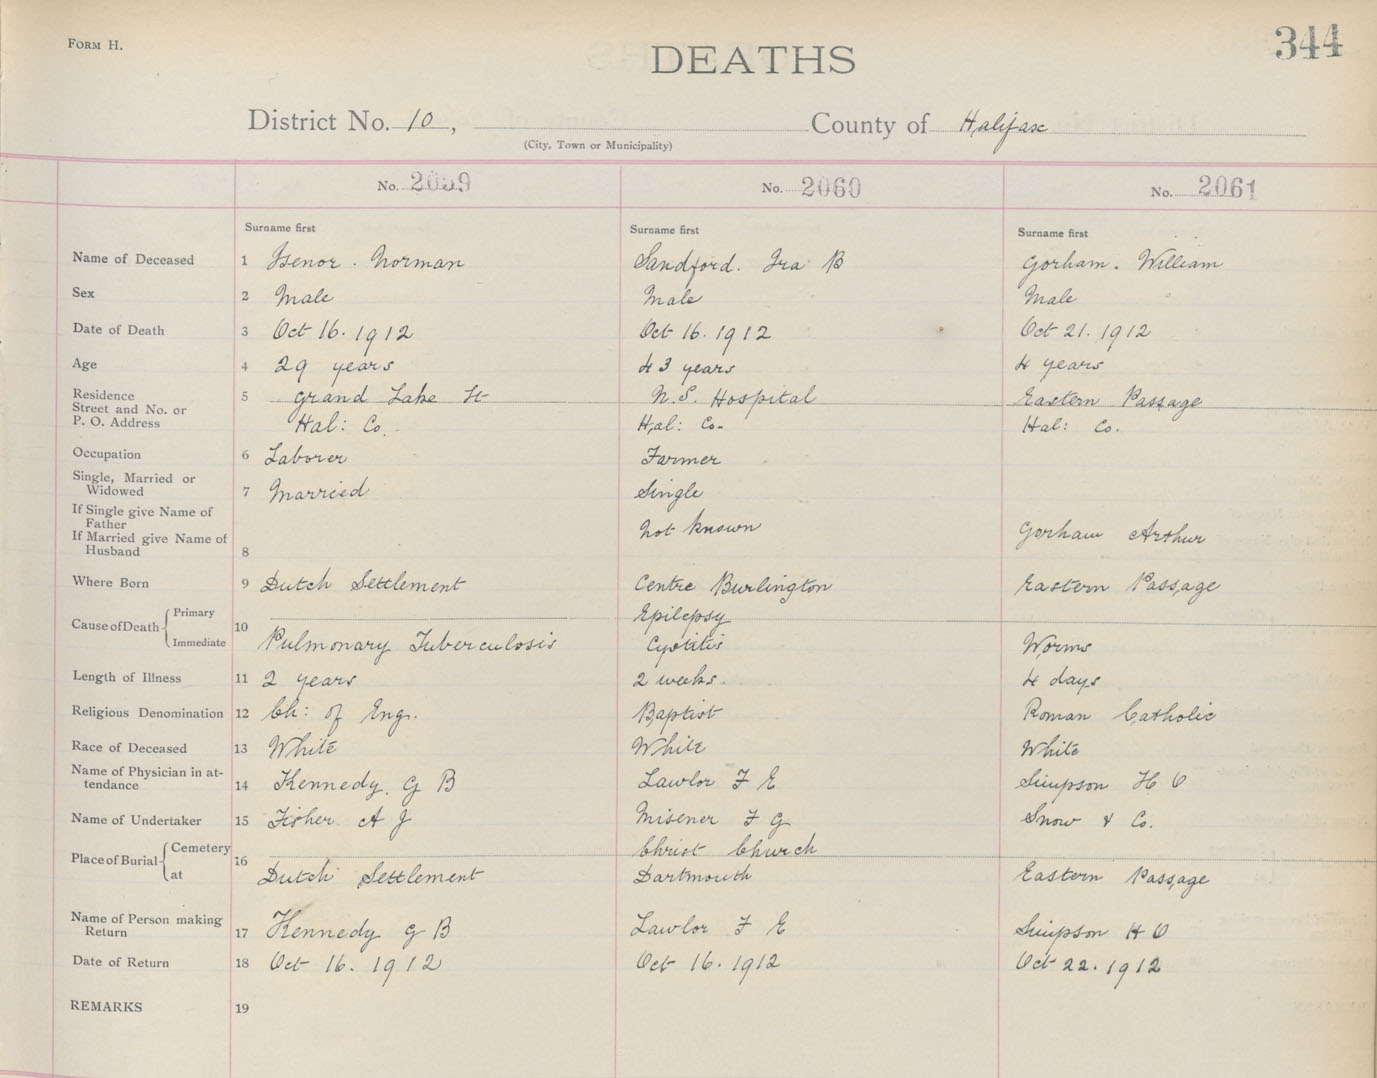 FORM H.
344
DEATHS
District No. 10, County of Halifax
(City, Town or Municipality)
No. 2059 No. 2060 No. 2061
Surname first Surname first Surname first
Name of Deceased 1 Isenor. Norman Sandford. Ira B Gorham. William
Sex 2 Male Male Male
Date of Death 3 Oct 16. 1912 Oct 16. 1912 Oct 21. 1912
Age 4 29 years 43 years 4 years
Residence 5 Grand Lake St N.S. Hospital Eastern Passage
Street and No. or
P. O. Address Hal: Co. Hal: Co. Hal: Co.
Occupation 6 Laborer Farmer
Single, Married or
Widowed 7 Married Single
If Single give Name of
Father Not known Gorham Arthur
If Married give Name of
Husband 8
Where Born 9 Dutch Settlement Centre Burlington Eastern Passage
Cause of Death 10 Primary Epilepsy
Immediate Pulmonary Tuberculosis Cystitis Worms
Length of Illness 11 2 years 2 weeks. 4 days
Religious Denomination 12 Ch: of Eng. Baptist Roman Catholic
Race of Deceased 13 White White White
Name of Physician in at-
tendance 14 Kennedy. G B Lawlor F E Simpson H O
Name of Undertaker 15 Fisher A J Misener F G Snow & Co.
Place of Burial 16 Cemetery Christ Church
at Dutch Settlement Dartmouth Eastern Passage
Name of Person making
Return 17 Kennedy G B Lawlor F E Simpson H O
Date of Return 18 Oct 16. 1912 Oct 16. 1912 Oct 22. 1912
REMARKS 19